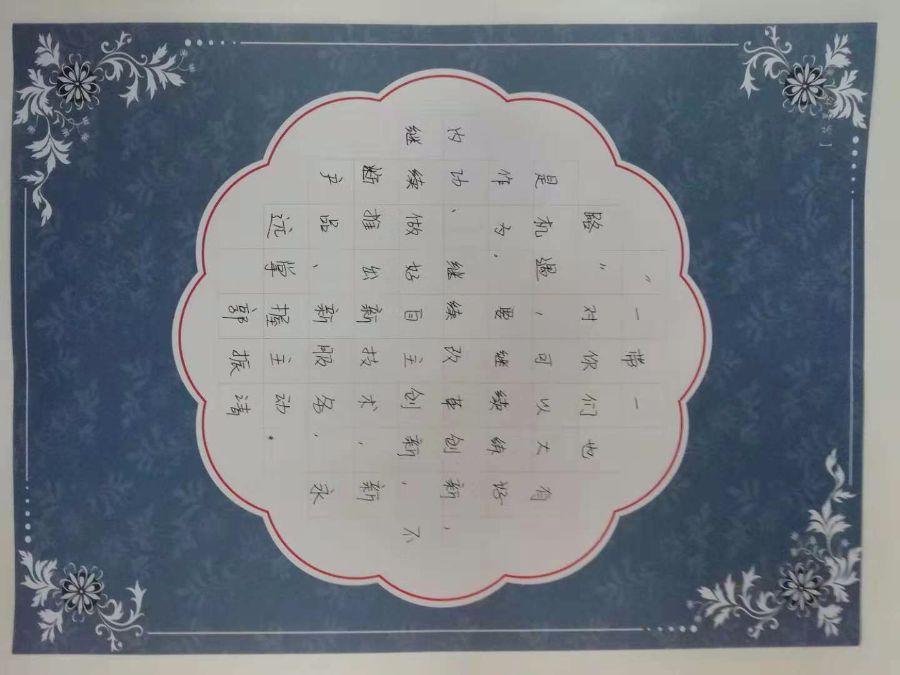 “一带一
路”对你们也
是机遇，可以大有
作为，要继续练好
内功、继续改革创新，
继续做好自主创新，不
断推出新技术，新
产品、新服务，永
远掌握主动．
郭振清